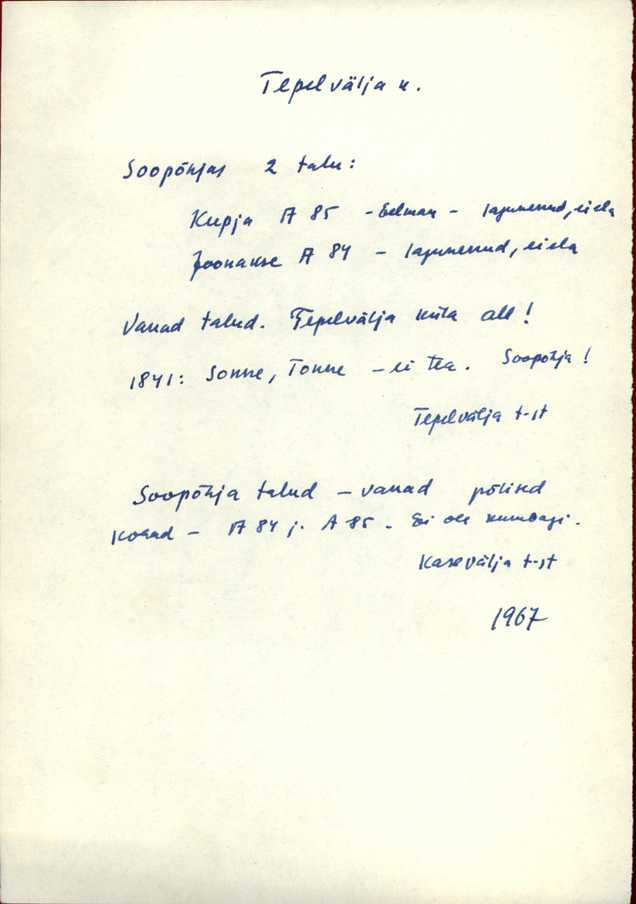 Tepelvälja k.
Soopõhjas 2 talu:
Kupja A 85 - Eelman - lagunenud, ei ela
Joonakse A 84 - lagunenud, ei ela
Vanad talud. Tepelvälja küla all!
1841: Sonne, Tonne - ei tea. Soopõhja!
Tepelvälja t-st
Soopõhja talud - vanad põlised
kohad - A 84 j. A 85. Ei ole kumbagi.
Kasevälja t-st
1967